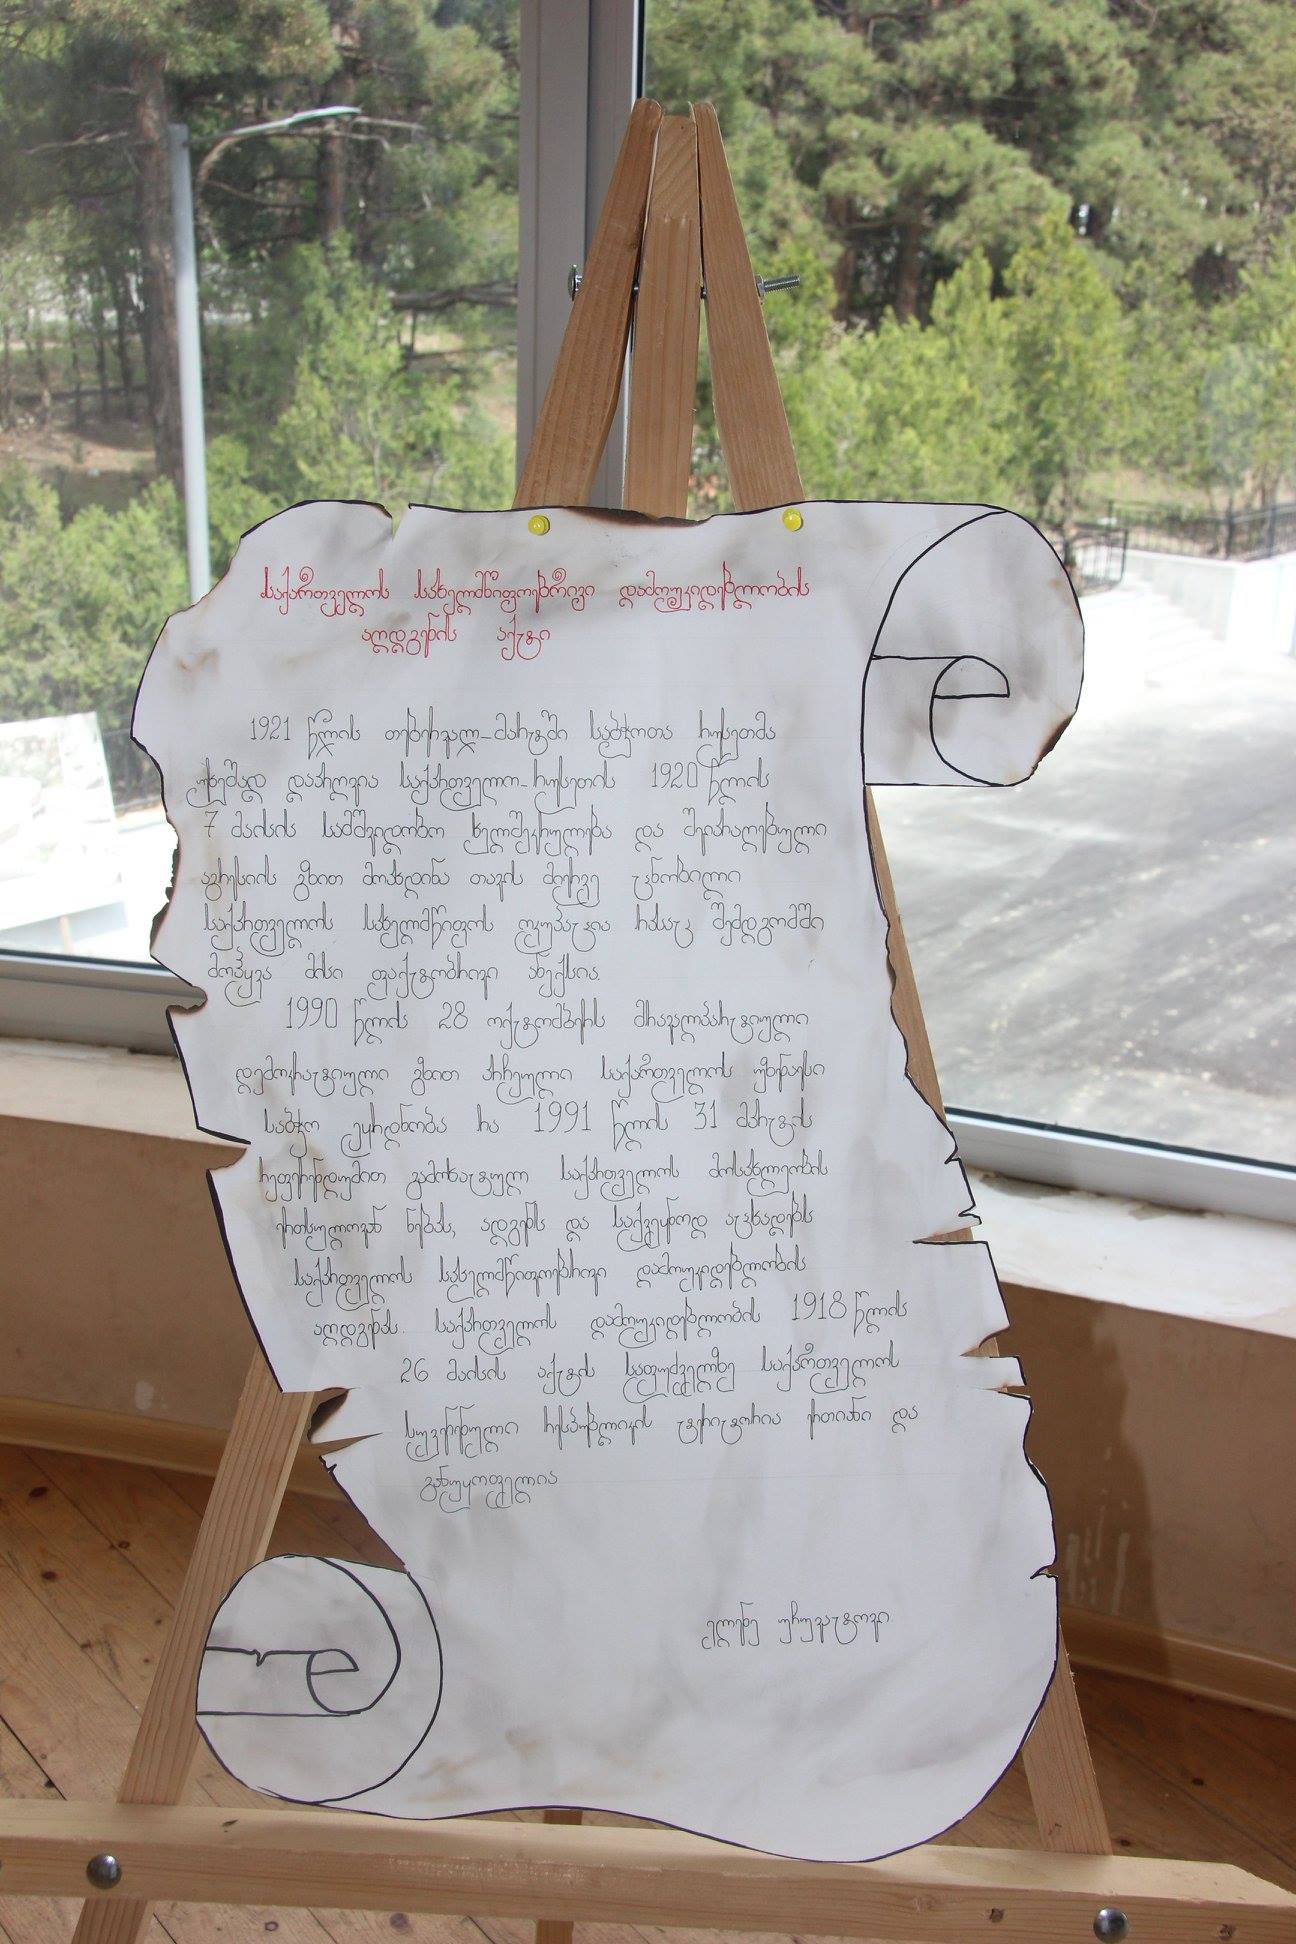 საქართველოს სახელმწიფოებრივი დამოუკიდებლობის
აღდგენის აქტი
1921 წლის თებერვალ-მარტში საბჭოთა რუსეთმა
უხეშად დაარღვია საქართველო-რუსეთის 1920 წლის
7 მაისის სამშვიდობო ხელშეკრულება და შეიარაღებული
აგრესიის გზით მოახდინა თავის მიერვე ცნობილი
საქართველოს სახელმწიფოს ოკუპაცია რასაც შემდგომში
მოჰყვა მისი ფაქტობრივი ანექსია.
1990 წლის 28 ოქტომბერს მრავალპარტიული
დემოკრატიული გზით არჩეული საქართველოს უზენაესი
საბჭო ეყრდნობა რა 1991 წლის 31 მარტის
რეფერენდუმით გამოხატულ საქართველოს მოსახლეობის
ერთსულოვან ნებას, ადგენს და საქვეყნოდ აცხადებს
საქართველოს სახელმწიფოებრივი დამოუკიდებლობის
აღდგენას. საქართველოს დამოუკიდებლობის 1918 წლის
26 მაისის აქტის საფუძველზე საქართველოს
სუვერენული რესპუბლიკის ტერიტორია ერთიანი და
განუყოფელია
ელენე